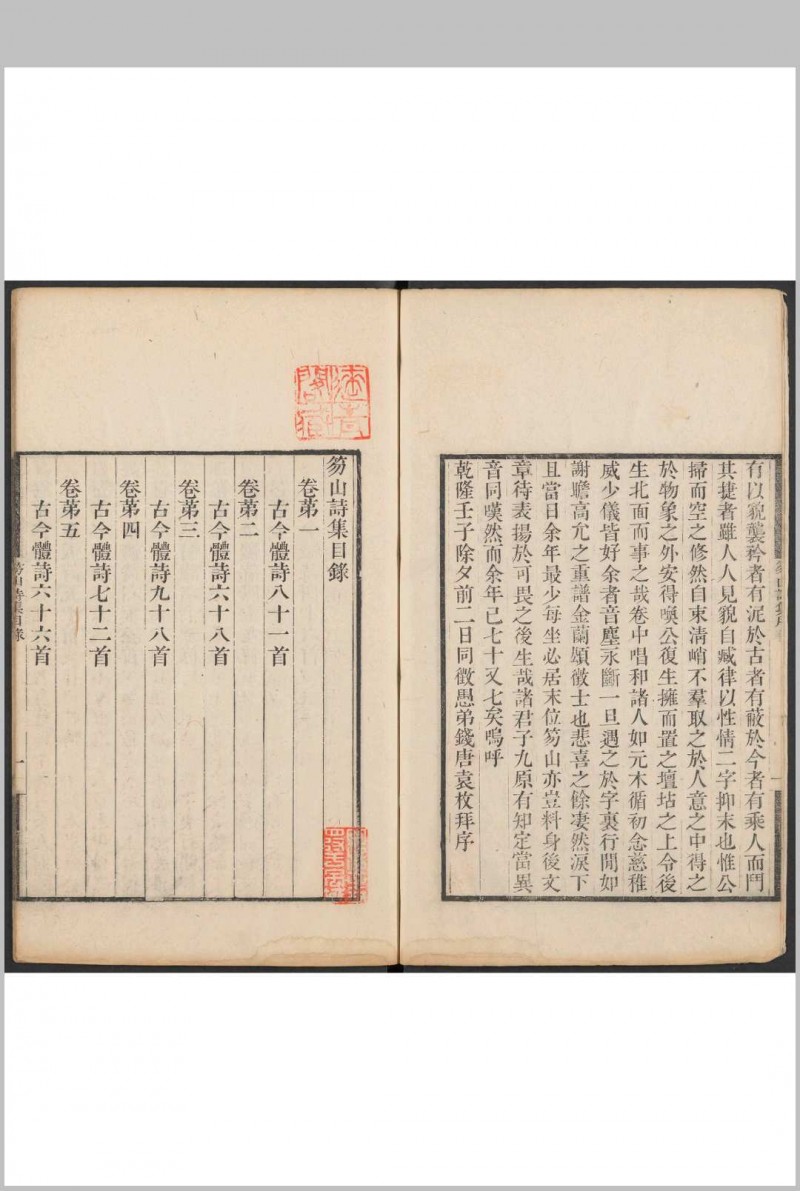 有以貌襲矜者有泥於古者有蔽於今者有乘人而鬥
其捷者雖人人見貌自臧律以性情二字抑末也惟公
掃而空之修然自東淸峭不羣取之於人意之中得之
於物象之外安得喚公復生擁而置之壇坫之上令後
生北面而事之哉卷中唱和諸人如元木循初念慈稚
威少儀皆好余者音塵永斷一旦遇之於字裏行閒如
謝瞻高允之重譜金蘭頌徵士也悲喜之餘凄然淚下
且當日余年最少每坐必居末位笏山亦豈料身後文
章待表揚於可畏之後生哉諸君子九原有知定當異
音同嘆然而余年已七十又七矣嗚呼
乾隆壬子除夕前二日同徵愚弟錢唐袁枚拜序
笏山詩集目錄
卷第一
古今體詩八十一首
卷第二
古今體詩六十八首
卷第三
古今體詩九十八首
卷第四
古今體詩七十二首
卷第五
古今體詩六十六首
笏山詩集目錄
一